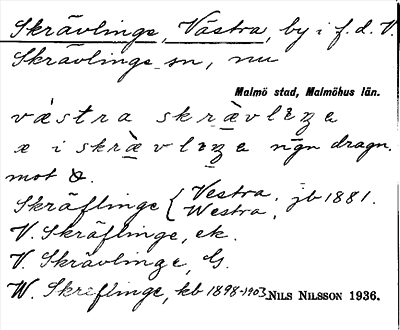 Skrävlinge, Västra, by i f. d. V.
Skrävlinge sn, nu
Malmö stad, Malmöhus län.
västra skrävlɩŋa
æ i skrävlɩŋa någn dragn.
mot
Skräflinge { Vestra, Westra, jb 1881.
V. Skräflinge, ek.
V. Skrävlinge, G.
W. Skreflinge, kb 1898-1903
NILS NILSSON 1936.